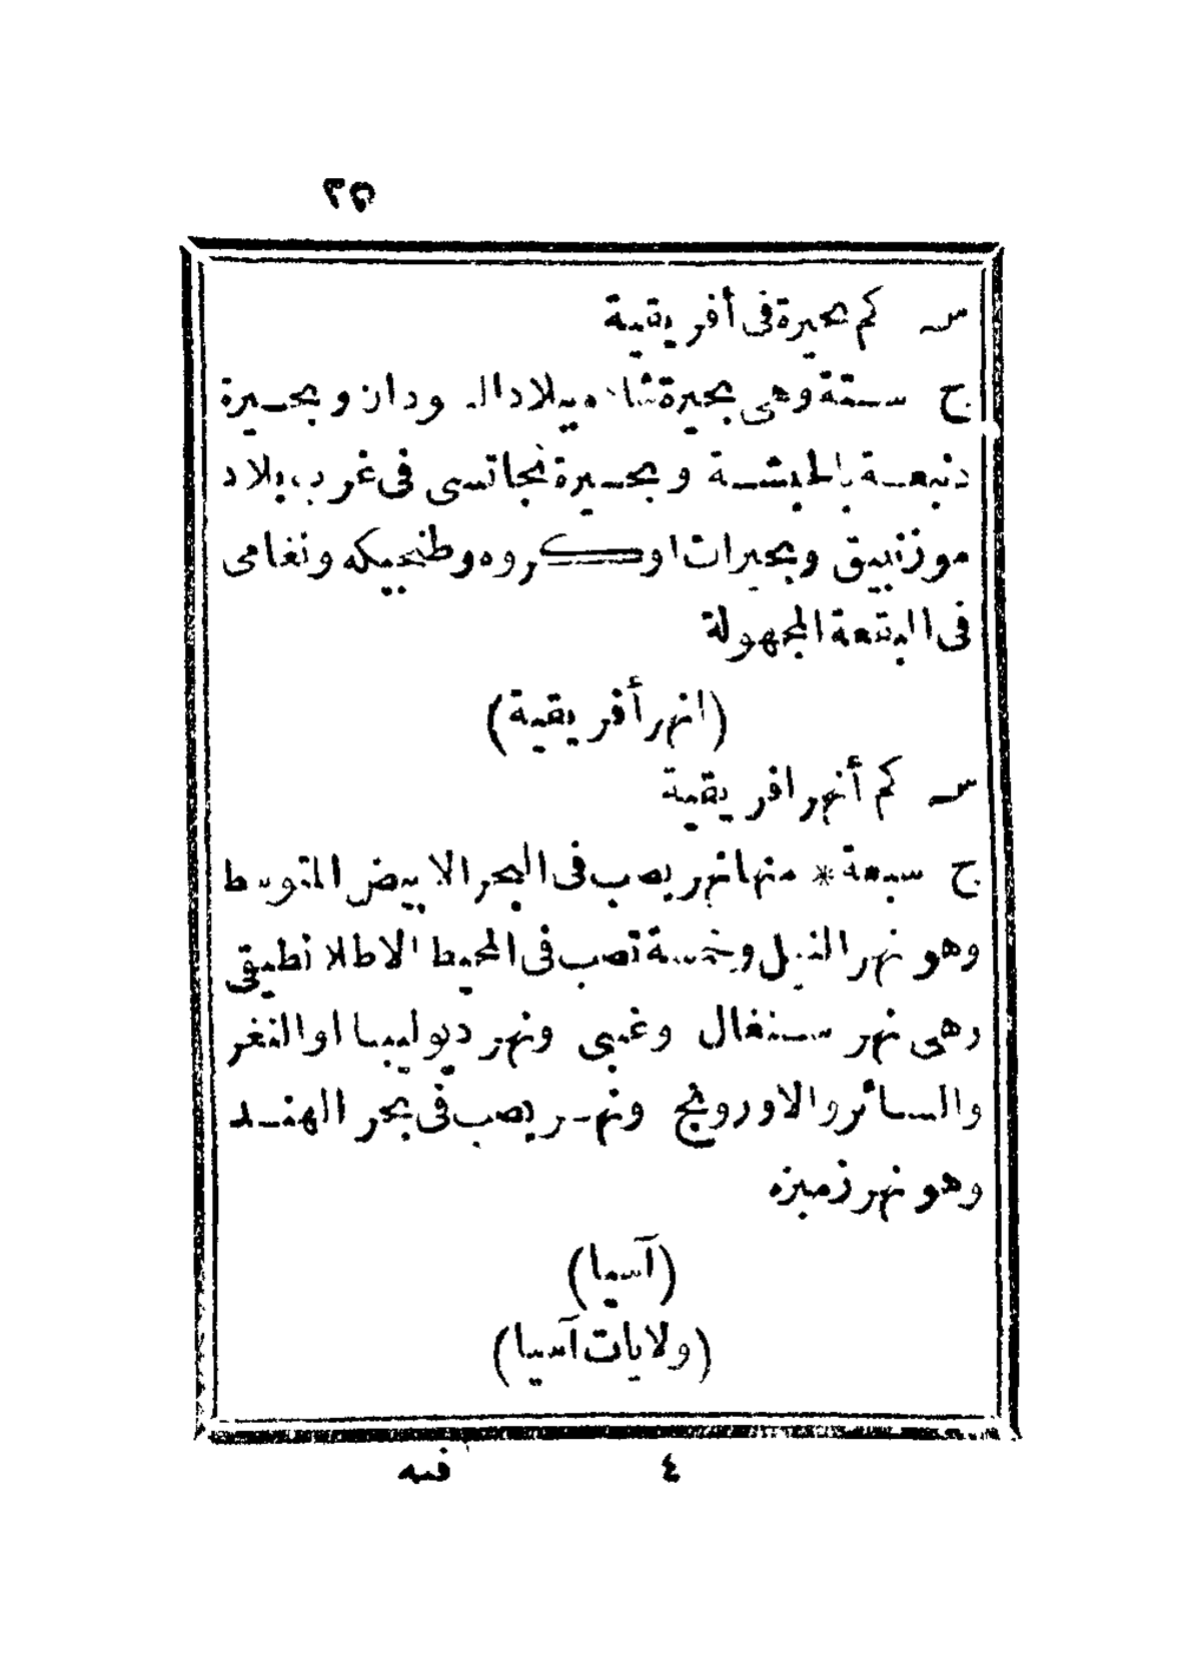 ٢٥
س كم بحيرة فى أفريقية
ج ستة وهى بحيرة شاد ببلاد السودان وبحيرة
دنبعة بالحبشة وبحيرة نجاتسى فى غرب بلاد
موزنبيق وبحيرات اوكروه وطنجيكه ونغامى
فى البقعة المجهولة
(انهر أفريقية)
س كم أنهر افريقية
ج سبعة * منها نهر يصب فى البحر الابيض المتوسط
وهو نهر النيل وخمسة تصب فى المحيط الاطلانطيقى
وهى نهر سنغال وغمبى ونهر ديوليبا او النغر
والسائر والاورونج ونهر يصب فى بحر الهند
وهو نهر زمبزه
(آسيا)
(ولايات آسيا)
٤ فيه